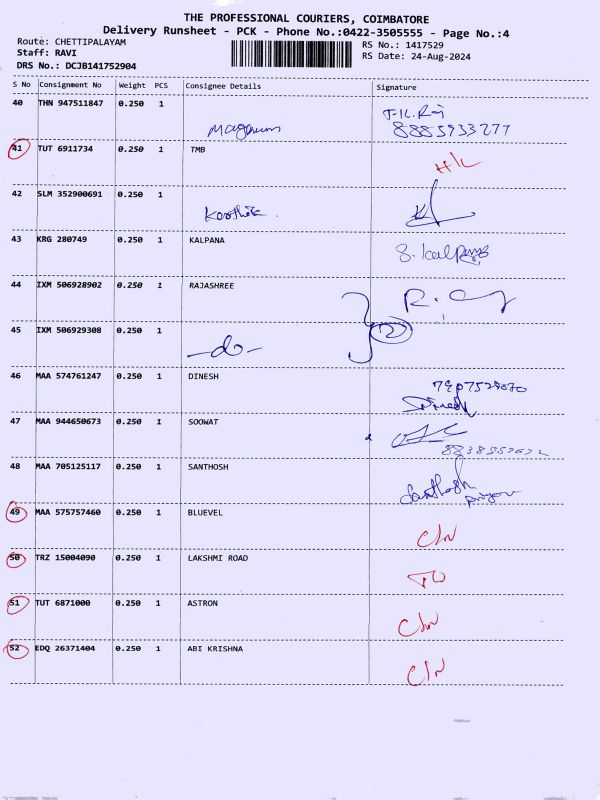 THE PROFESSIONAL COURIERS, COIMBATORE
Delivery Runsheet - PCK - Phone No.:0422-3505555 - Page No.:4
Route: CHETTIPALAYAM
RS No.: 1417529
Staff: RAVI
RS Date: 24-Aug-2024
DRS No.: DCJB141752904
S No Consignment No Weight PCS Consignee Details Signature
40 THN 947511847 0.250 1 Magnum
8885933277
41 TUT 6911734 0.250 1 TMB
42 SLM 352900691 0.250 1 Karthik
43 KRG 280749 0.250 1 KALPANA S. Kalpana
44 IXM 506928902 0.250 1 RAJASHREE
45 IXM 506929308 0.250 1 -do- 2
46 MAA 574761247 0.250 1 DINESH
Dinesh
47 MAA 944650673 0.250 1 SOOWAT
48 MAA 705125117 0.250 1 SANTHOSH Santhosh
49 MAA 575757460 0.250 1 BLUEVEL C/N
50 TRZ 15004090 0.250 1 LAKSHMI ROAD TO
51 TUT 6871000 0.250 1 ASTRON C/N
52 EDQ 26371404 0.250 1 ABI KRISHNA C/N